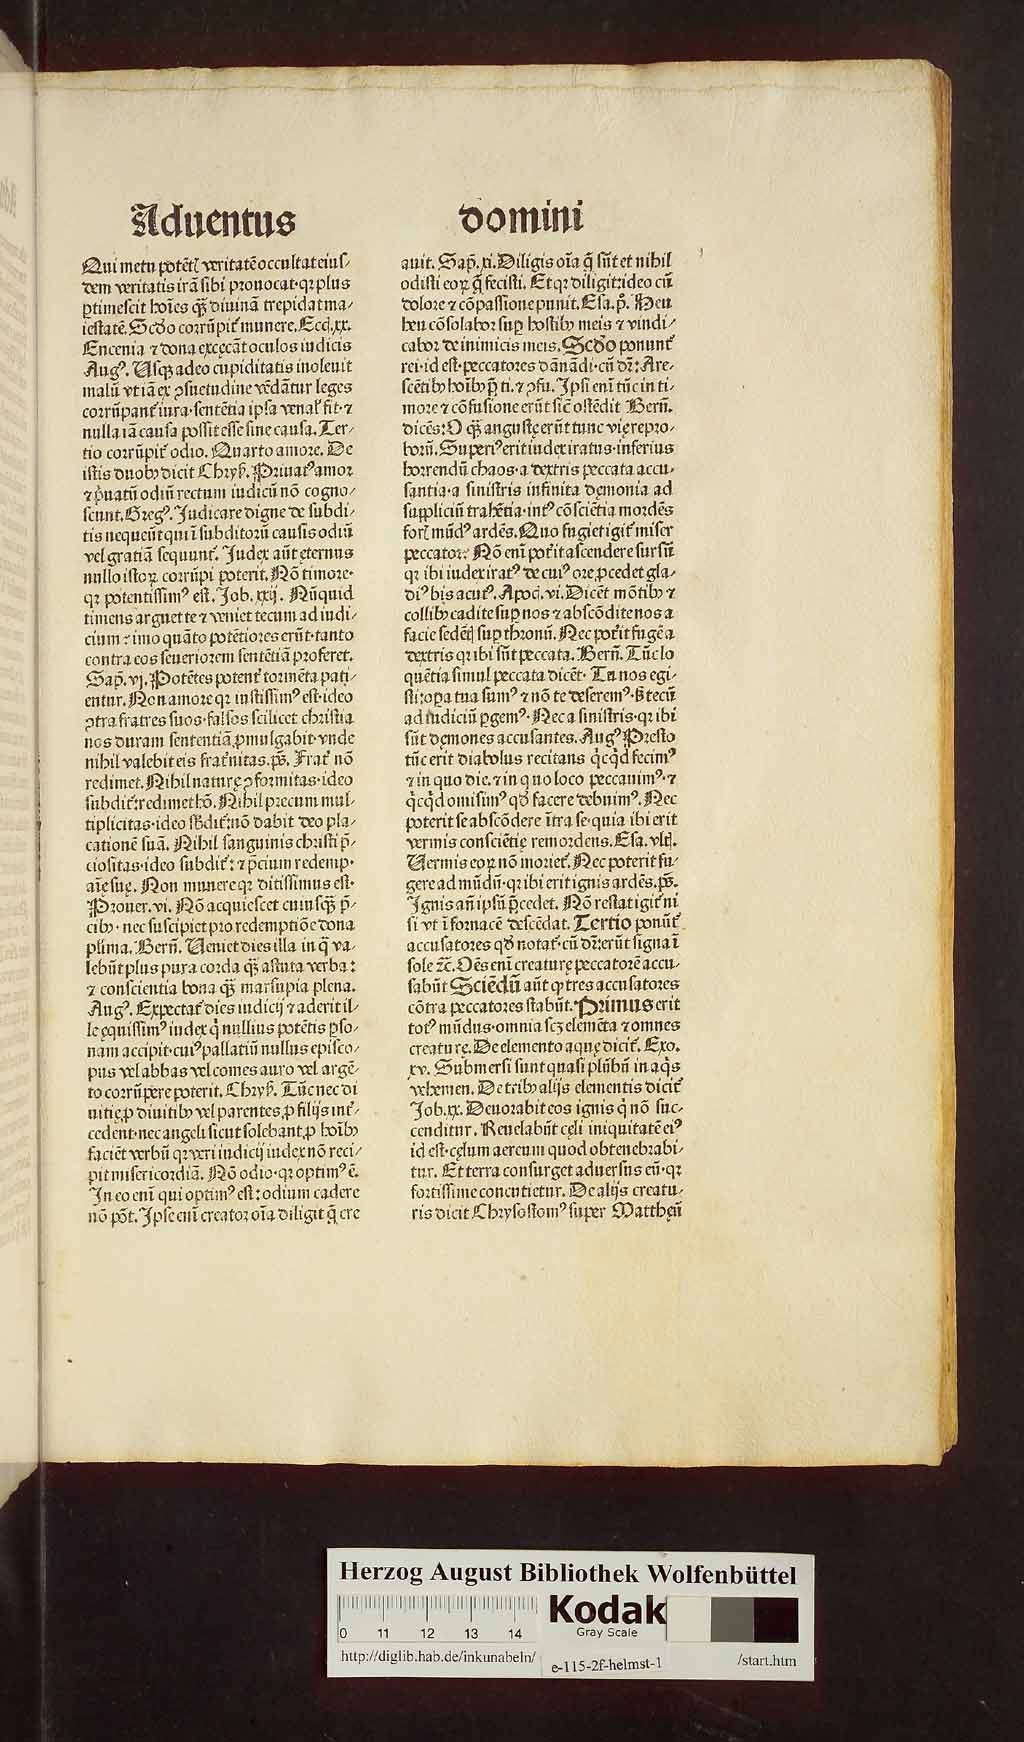 Aduentus domini
Qui metu potētꝭ veritatē occultat eius⸗
dem veritatis irā sibi prouocat·qꝛ plus
ꝑtimescit hoīes qꝫ̄ diuinā trepidat ma⸗
iestatē. Scďo corrūpit᷑ munere. Eccꝉ. xx.
Encenia ⁊ dona excęcāt oculos iudicis
Augꝰ. Usqꝫ adeo cupiditatis inoleuit
malū vt iā ex ꝯsuetudine vēdātur leges
corrūpant᷑ iura·sentētia ipsa venał fit·⁊
nulla iā causa possit esse sine causa. Ter⸗
tio corrūpit᷑ odio. Quarto amore. De
istis duobꝫ dicit Chryẞ. Priuatꝰ amor
⁊ p̄uatū odiū rectum iudiciū nō cogno⸗
scunt. Gregꝰ. Judicare digne de subdi⸗
tis nequeūt qui ī subditorū causis odiū
vel gratiā sequunt᷑. Judex aūt ęternus
nullo istoꝝ corrūpi poterit. Nō timore·
qꝛ potentissimꝰ est. Job. xxij. Nūquid
timens arguet te ⁊ veniet tecum ad iudi⸗
cium: imo quāto potētiores erūt·tanto
contra eos seueriorem sentētiā proferet.
Sap̄. vj. Potētes potent᷑ tormēta pati⸗
entur. Non amore qꝛ iustissimꝰ est·ideo
ꝯtra fratres suos·falsos scilicet christia
nos duram sententiā ꝓmulgabit·vnde
nihil valebit eis frat᷑nitas. ps̄. Frat᷑ nō
redimet. Nihil naturę ꝯformitas·ideo
subdit᷑: redimet hō. Nihil precum mul⸗
tiplicitas·ideo sb̄dit᷑: nō dabit deo pla⸗
cationē suā. Nihil sanguinis christi p̄⸗
ciositas·ideo subdit᷑: ⁊ p̄cium redemp·
aīę suę. Non munere qꝛ ditissimus est·
Prouer. vi. Nō acquiescet cuiusqꝫ̄ p̄⸗
cibꝫ·nec suscipiet pro redemptiōe dona
pl̄ima. Berñ. Ueniet dies illa in q̄ va⸗
lebūt plus pura corda qꝫ̄ astuta verba:
⁊ conscientia bona qꝫ̄ marsupia plena.
Augꝰ. Expectat᷑ dies iudicij ⁊ aderit il⸗
le ęquissimꝰ iudex q̇ nullius potētis ꝑso⸗
nam accipit·cuiꝰ pallatiū nullus episco⸗
pus vel abbas vel comes auro vel argē⸗
to corrūpere poterit. Chryẞ. Tūc nec di
uitię ꝓ diuitibꝫ vel parentes ꝓ filijs int᷑⸗
cedent·nec angeli sicut solebant ꝓ hoībꝫ
faciēt verbū qꝛ veri iudicij iudex nō reci⸗
pit misericordiā. Nō odio·qꝛ optimꝰ ē.
In eo enī qui optimꝰ est: odium cadere
nō pōt. Ipse enī creator oīa diligit q̄ cre
auit. Sap̄. xi. Diligis oīa q̄ sūt et nihil
odisti eoꝝ q̄ fecisti. Et qꝛ diligit: ideo cū
dolore ⁊ cōpassione punit. Esa. pº. Heu
heu cōsolabor suꝑ hostibꝫ meis ⁊ vindi⸗
cabor de inimicis meis. Scďo ponunt᷑
rei·id est·peccatores dānādi·cū dr̄: Are⸗
scētibꝫ hoībꝫ p̄ ti. ⁊ ꝯfu. Ipsi enī tūc in ti⸗
more ⁊ cōfusione erūt sic̄ ostēdit Berñ.
dicēs: O qꝫ̄ angustę erūt tunc vię repro⸗
borū. Superiꝰ erit iudex iratus·inferius
horrendū chaos·a dextris peccata accu⸗
santia·a sinistris infinita dęmonia ad
suppliciū trahētia·intꝰ cōsciētia mordēs
forꝭ mūdꝰ ardēs. Quo fugiet igit᷑ miser
peccator: Nō enī pot᷑it ascendere sursū
qꝛ ibi iudex iratꝰ de cuiꝰ ore ꝓcedet gla⸗
diꝰ bis acutꝰ. Apocꝉ. vi. Dicēt mōtibꝫ ⁊
collibꝫ cadite suꝑ nos ⁊ abscōdite nos a
facie sedētꝭ suꝑ thronū. Nec pot᷑it fugē a
dextris qꝛ ibi sūt peccata. Berñ. Tūc lo
quētia simul peccata dicēt· Tu nos egi⸗
sti: oꝑa tua sumꝰ ⁊ nō te deseremꝰ·sꝫ tecū
ad iudiciū ꝑgemꝰ·Nec a sinistris·qꝛ ibi
sūt dęmones accusantes. Augꝰ Presto
tūc erit diabolus recitans q̇cq̇d fecimꝰ
⁊ in quo die·⁊ in quo loco peccauimꝰ·⁊
q̇cq̇d omisimꝰ qď facere debuimꝰ. Nec
poterit se abscōdere ītra se·quia ibi erit
vermis consciētię remordens. Esa. vltꝭ.
Uermis eoꝝ nō moriet᷑. Nec poterit fu⸗
gere ad mūdū·qꝛ ibi erit ignis ardēs. ps̄.
Ignis añ ipsū p̄cedet. Nō restat igit᷑ ni
si vt ī fornacē descēdat. Tertio ponūt᷑
accusatores qď notat᷑·cū dr̄: erūt signa ī
sole ⁊c̄. Oēs enī creaturę peccatorē accu⸗
sabūt Sciēdū aūt ꝙ tres accusatores
cōtra peccatores stabūt. Primus erit
totꝰ mūdus·omnia scꝫ elemēta ⁊ omnes
creaturę. De elemento aquę dicit᷑. Exo.
xv. Submersi sunt quasi plūbū in aq̇s
vehemen. De tribꝫ alijs elementis dicit᷑
Job. xx. Deuorabit eos ignis q̇ nō suc⸗
cenditur. Reuelabūt cęli iniquitatē eiꝰ
id est·cęlum aereum quod obtenebrabi⸗
tur. Et terra consurget aduersus eū·qꝛ
fortissime concutietur. De alijs creatu⸗
ris dicit Chrysostomꝰ super Matthęū
Herzog August Bibliothek Wolfenbüttel
Kodak
Gray Scale
0 11 12 13 14
http://diglib.hab.de/inkunabeln/ e-115-2f-helmst-1 /start.htm